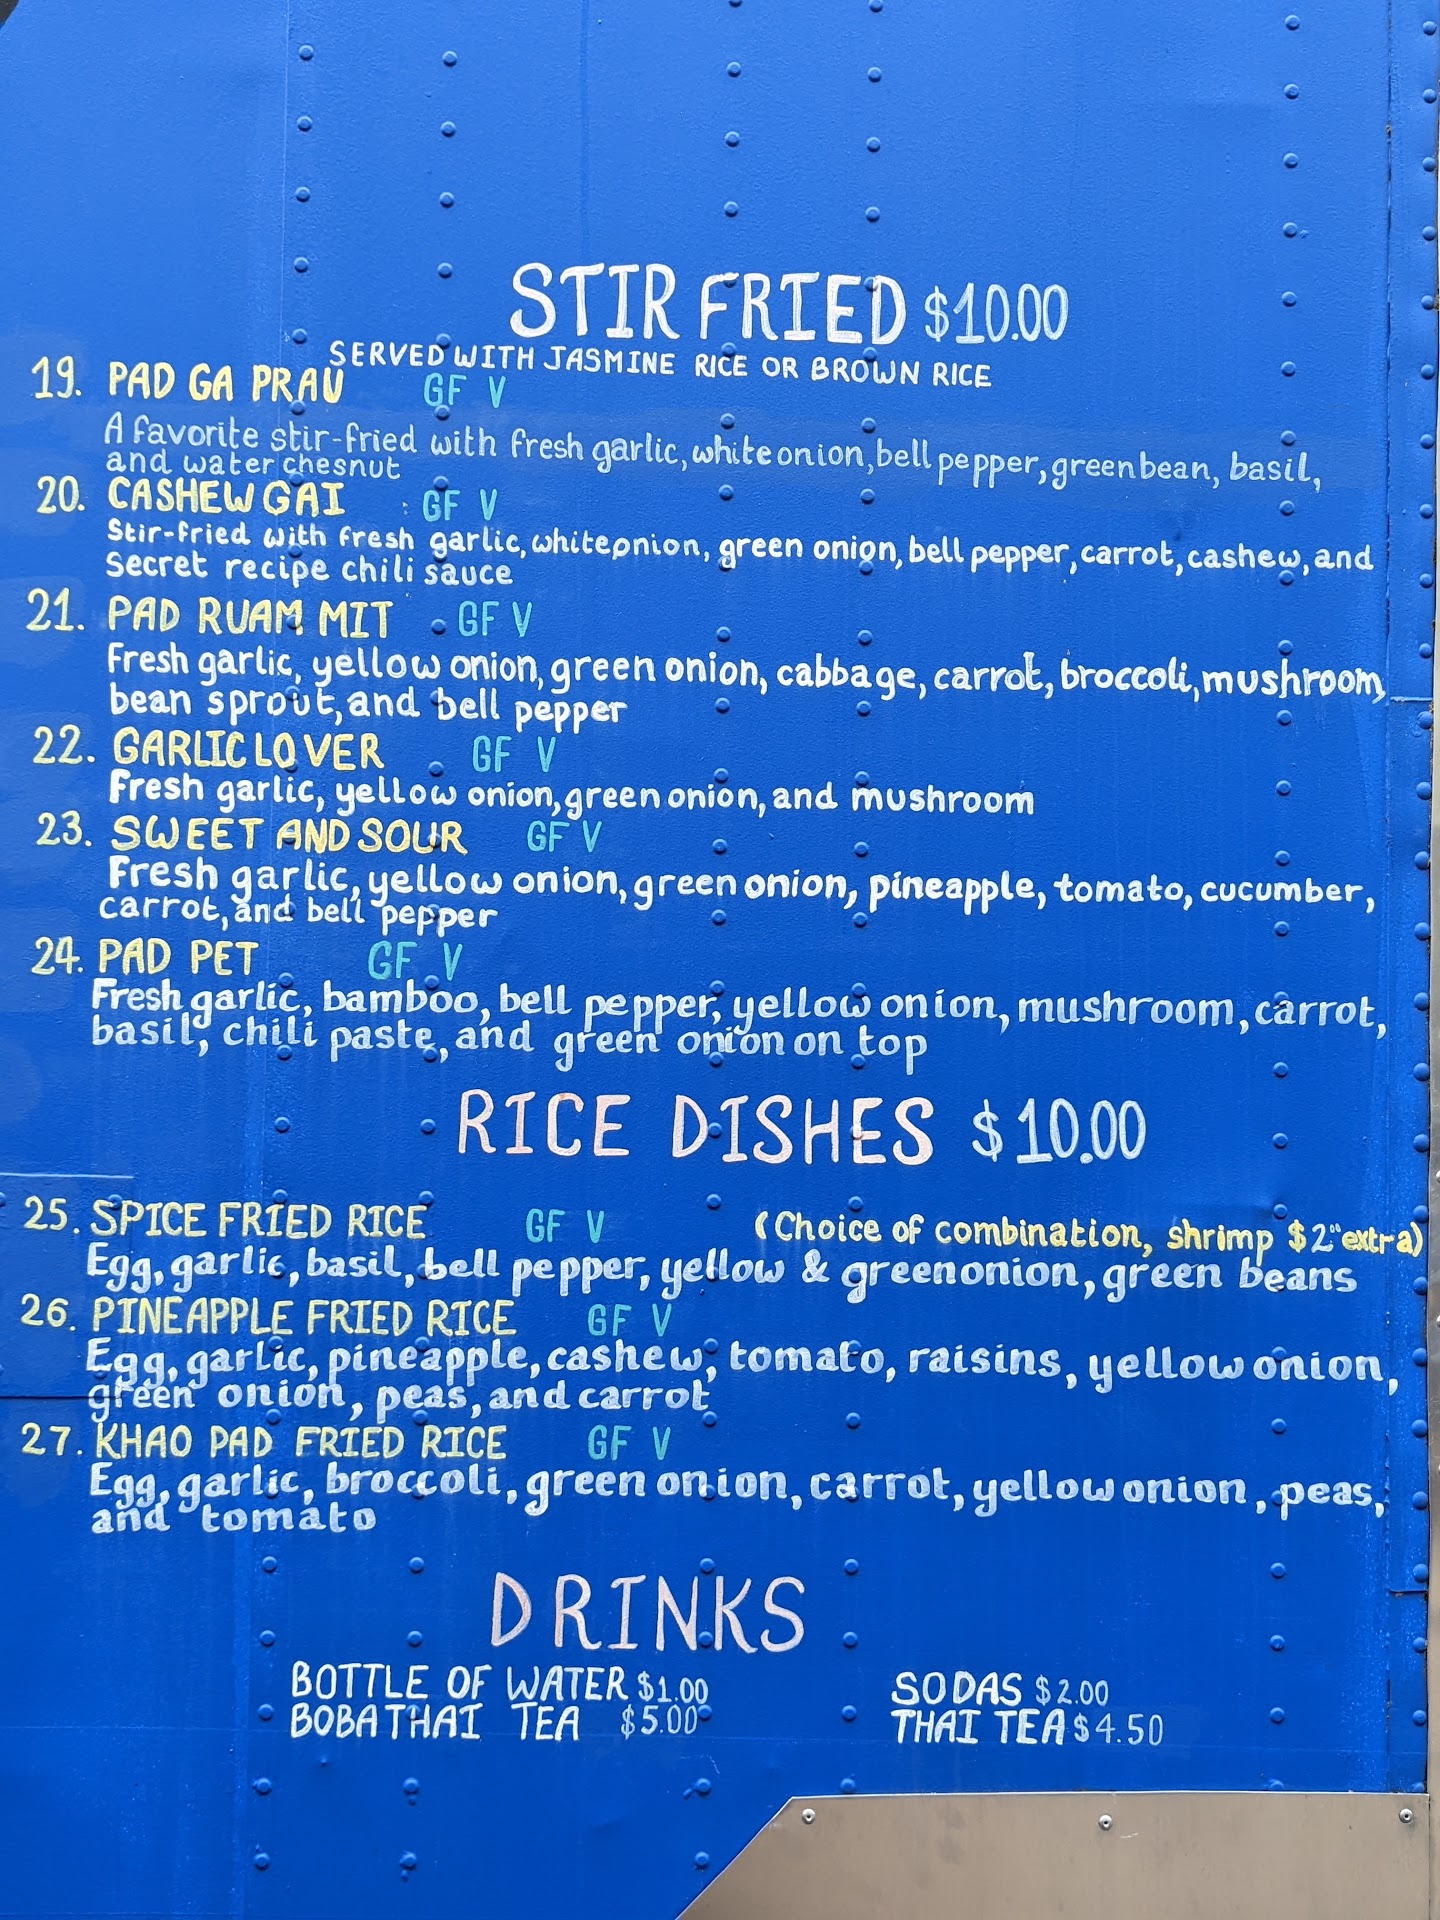 STIR FRIED $10.00
SERVED WITH JASMINE RICE OR BROWN RICE
19. PAD GA PRAU GF V
A favorite stir-fried with fresh garlic, white onion, bell pepper, green bean, basil,
and water chesnut
20. CASHEW GAI GF V
Stir-fried with fresh garlic, white onion, green onion, bell pepper, carrot, cashew, and
secret recipe chili sauce
21. PAD RUAM MIT GF V
Fresh garlic, yellow onion, green onion, cabbage, carrot, broccoli, mushroom,
bean sprout, and bell pepper
22. GARLIC LOVER GF V
Fresh garlic, yellow onion, green onion, and mushroom
23. SWEET AND SOUR GF V
Fresh garlic, yellow onion, green onion, pineapple, tomato, cucumber,
carrot, and bell pepper
24. PAD PET GF V
Fresh garlic, bamboo, bell pepper, yellow onion, mushroom, carrot,
basil, chili paste, and green onion on top
RICE DISHES $10.00
25. SPICE FRIED RICE GF V (Choice of combination, shrimp $2.00 extra)
Egg, garlic, basil, bell pepper, yellow & green onion, green beans
26. PINEAPPLE FRIED RICE GF V
Egg, garlic, pineapple, cashew, tomato, raisins, yellow onion,
green onion, peas, and carrot
27. KHAO PAD FRIED RICE GF V
Egg, garlic, broccoli, green onion, carrot, yellow onion, peas,
and tomato
DRINKS
BOTTLE OF WATER $1.00 SODAS $2.00
BOBA THAI TEA $5.00 THAI TEA $4.50